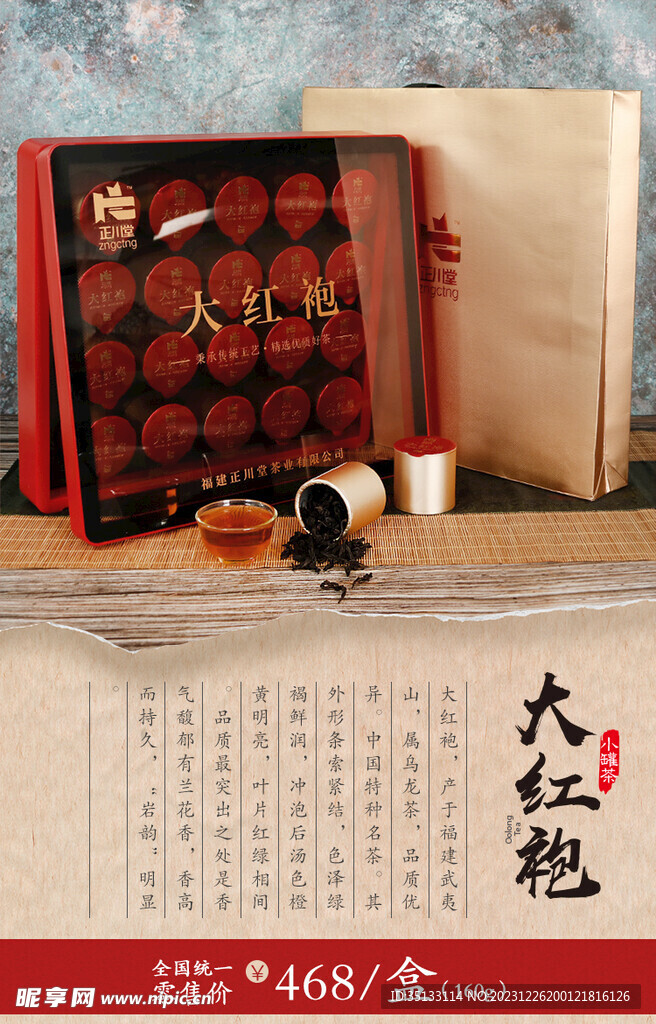 正川堂
zngctng
大红袍
秉承传统工艺·精选优质好茶
福建正川堂茶业有限公司
正川堂
zngctng
大红袍
小罐茶
Oolong
Tea
大红袍，产于福建武夷
山，属乌龙茶，品质优
异。中国特种名茶。其
外形条索紧结，色泽绿
褐鲜润，冲泡后汤色橙
黄明亮，叶片红绿相间
。品质最突出之处是香
气馥郁有兰花香，香高
而持久，“岩韵”明显
。
全国统一
零售价
¥ 468/盒（160g）
昵享网 www.nipic.cn
ID:35133114 NO:20231226200121816126